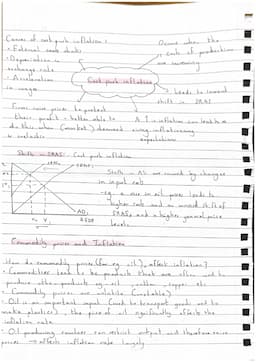 Causes of cost push inflation:
• External
• Depreciation in
exchange rate
• Acceleration
in wages
Occurs when the
costs of production
are increasing
Cost push inflation
leads to inward
shift in SRAS
Firms raise prices to protect
their profit - better able to
do this when (market) demand
is inelastic
A ↑ in inflation can lead to a
rising inflationary
expectations
Shifts in SRAS: Cost push inflation
Shifts in AS are caused by changes
in input costs
eg. a rise in oil price leads to
higher costs and an inward shift of
SRAS and a higher general price
level
AD
Commodity prices and Inflation
How do commodity prices (for eg. oil), affect inflation?
• Commodities tend to be products that are often used to
produce other products eg - oil, cotton, copper etc
• Commodity prices are volatile (unstable)
• Oil is an important input (used to transport goods and to
make plastics), the price of oil significantly affects the
inflation rate
• Oil producing countries can restrict output and therefore raise
prices → affects inflation rate largely